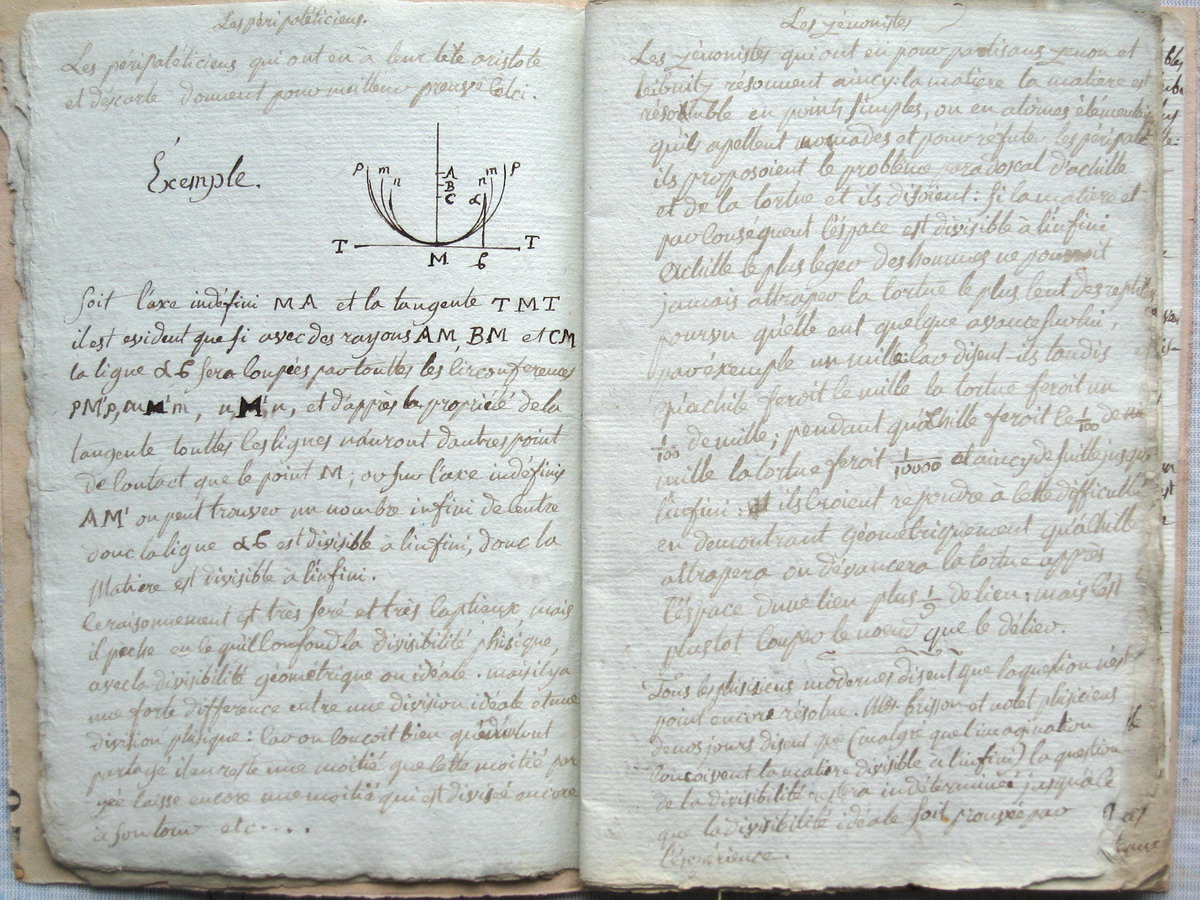 Les péripatéticiens.
Les péripatéticiens qui ont eu a leur tête aristote
et descarte donnent pour meilleur preuve celci.
Éxemple.
P m n A B C n m P
α
T M 6 T
soit l'axe indéfini MA et la tangente TMT
il est evident que si avec des rayons AM, BM et CM
la ligne α6 sera coupées par touttes les circonferences
PM'p, mM'm, nM'n, et d'après la propriété de la
tangente touttes ces lignes n'auront d'autres point
de contact que le point M; or sur l'axe indéfini
AM' on peut trouver un nombre infini de centre
donc la ligne α6 est divisible à l'infini, donc la
Matiere est divisible à l'infini.
ce raisonnement est très seré et très captieux mais
il peche en ce quil confond la divisibilité phisique,
avec la divisibilité géométrique ou idéale. mais il y a
une forte difference entre une division idéale et une
division phisique: car on conçoit bien qu'un tout
partagé il en reste une moitié que cette moitié par
gée laisse encore une moitié qui est divisée encore
à son tour etc....
Les zénonistes
Les zénonistes qui ont eu pour partisans zenon et
leibnitz résonnent aincy: la matiere la matiere est
résoluble en points simples, ou en atômes élémentai
qu'ils apellent monades et pour refuter les péripate
ils proposoient le problême paradoscal d'achille
et de la tortue et ils disoient: si la matiere et
par conséquent l'éspace est divisible à l'infini
Achille le plus leger des hommes ne pouroit
jamais attraper la tortue le plus lent des reptiles
pourvu qu'elle eut quelque avance sur lui,
par éxemple un mille: car disent-ils tandis
qu'achile feroit le mille la tortue feroit un
1/100 de mille; pendant qu'achille feroit ce 1/100 de
mille la tortue feroit 1/10000 et aincy de suitte jusqu'a
l'infini: ils croient repondre à cette difficulté
en demontrant géometriquement qu'achille
attrapera ou dévancera la tortue apprès
l'éspace d'une lieu plus 1/9 de lieu; mais c'est
plustot couper le noeud que le délier.
Tous les phisiciens modernes disent que la question n'est
point encore résolue. Mrs brisson et nolet phisiciens
de nos jours disent que (malgre que l'imagination
conçoivent la matiere divisible à l'infini) la question
de la divisibilité restera indéterminée jusqu'à ce
que la divisibilité idéale soit prouvée par
l'éxperience.